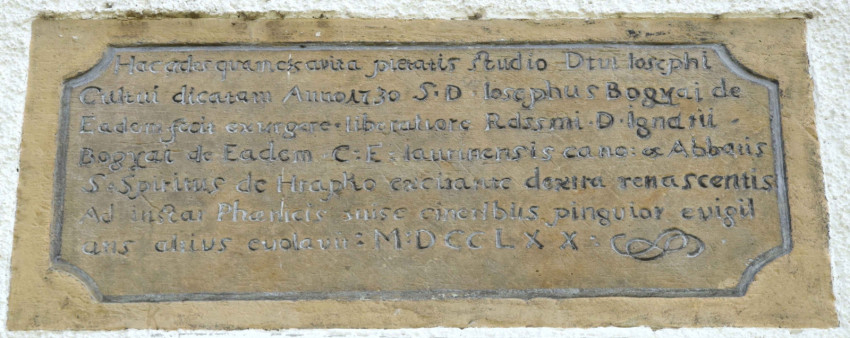 Hac aedes quam ex avita pietatis studio Divi Iosephi
Cultui dicatam Anno 1730 S·D Iosephus Bogyai de
Eadem fecit exurgere liberaliore Rdssmi·D·Ignatii
Bogyai de Eadem·C:E: Iaurinensis cano: ex Abbatis
S·Spiritus de Hrapko exeitante dextra renascentis
Ad instar Phaenicis cineribus pinguior evigil
ans altius evolavit: M:DCCLXX: